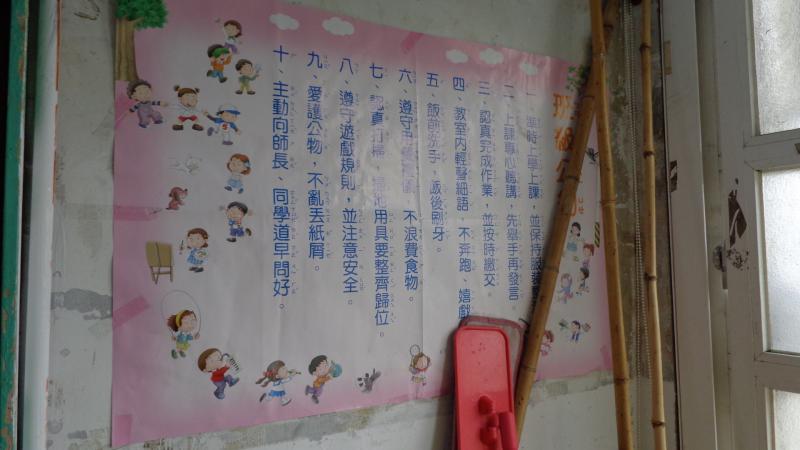 班級公
一、準時上學上課，並保持服裝
二、上課專心聽講，先舉手再發言
三、認真完成作業，並按時繳交
四、教室內輕聲細語，不奔跑、嬉戲
五、飯前洗手，飯後刷牙。
六、遵守用餐禮儀，不浪費食物。
七、認真打掃，掃地用具要整齊歸位。
八、遵守遊戲規則，並注意安全。
九、愛護公物，不亂丟紙屑。
十、主動向師長、同學道早問好。